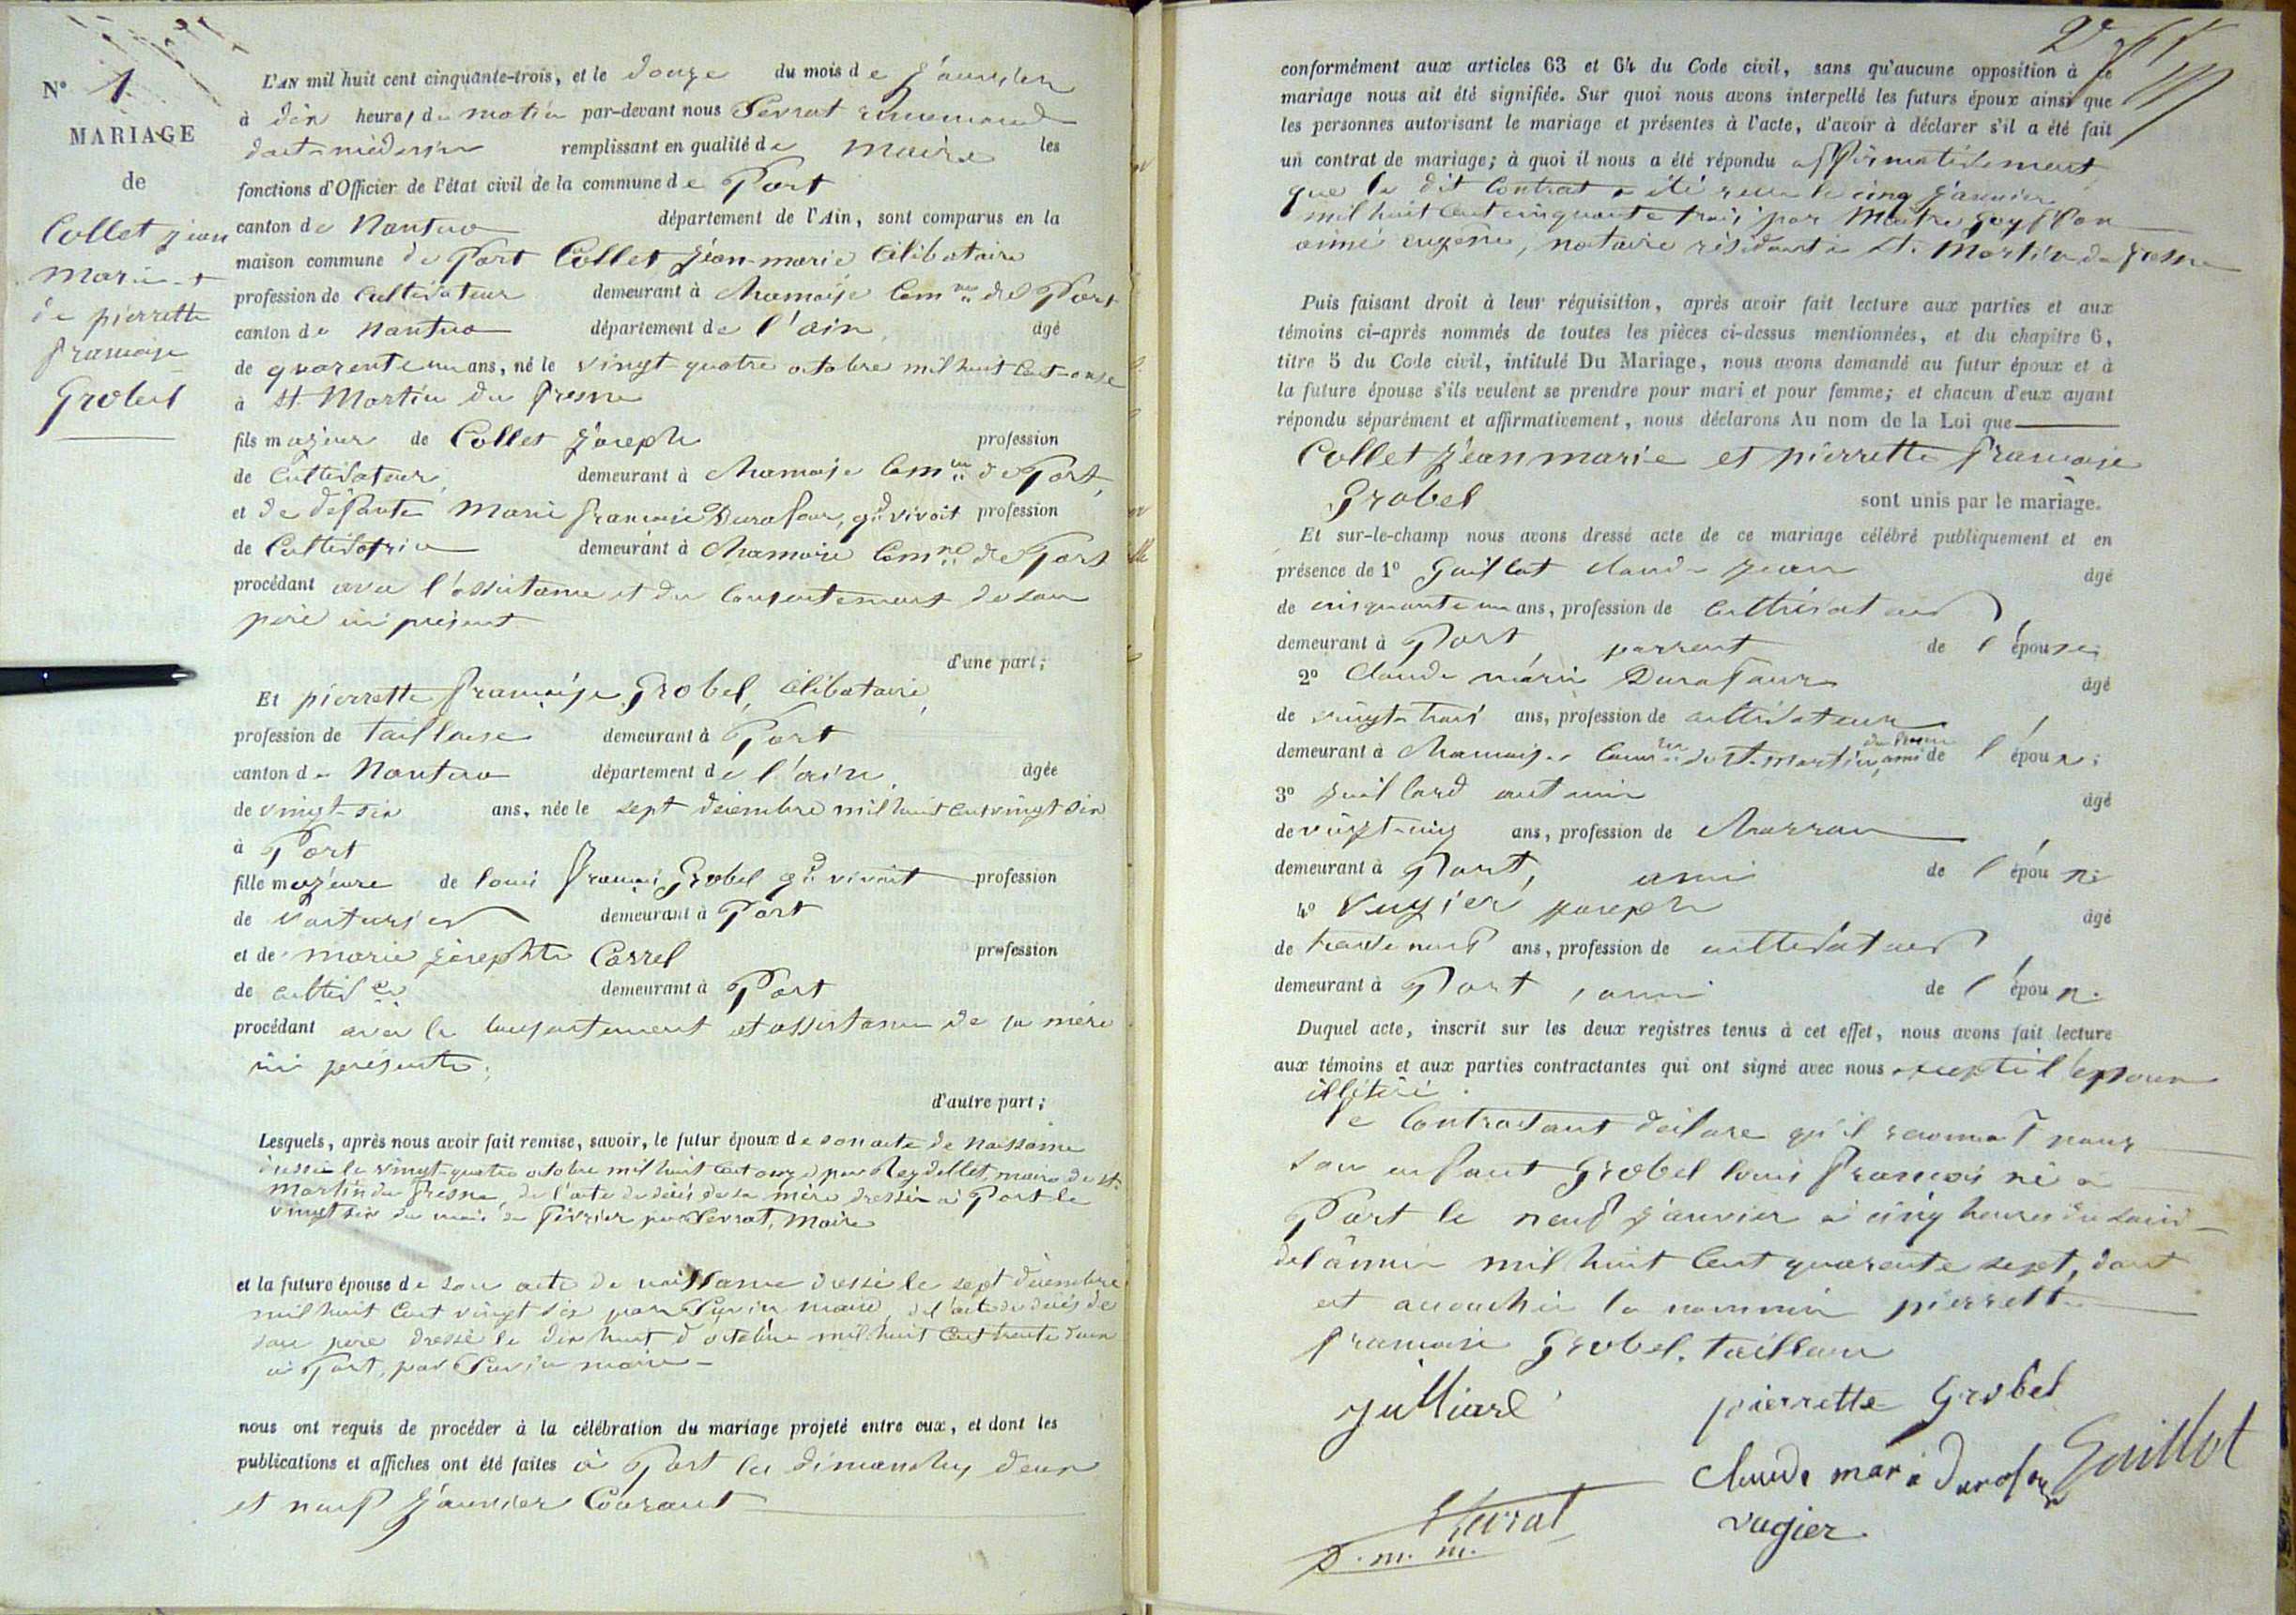 N° 1
MARIAGE
de
Collet jean
marie et
de pierrette
francoise
Grobel
L'AN mil huit cent cinquante-trois, et le douze du mois de janvier
à dix heures du matin par-devant nous Sevrat
doct. médecin remplissant en qualité de maire les
fonctions d'Officier de l'état civil de la commune de Port
canton de Nantua département de l'Ain, sont comparus en la
maison commune de Port Collet jean-marie Célibataire
profession de Cultivateur demeurant à Chamoise Comne de Port
canton de Nantua département de l'ain, agé
de quarante un ans, né le vingt-quatre octobre mil huit Cent-onze
à St. Martin du fresne
fils majeur de Collet joseph profession
de Cultivateur, demeurant à Chamoise Comne de Port,
et de défunte Marie francoise Durafour, qd vivait profession
de Cultivatrice demeurant à Chamoise Comne de Port
procédant avec l'assistance et du Consentement de son
père ici présent
d'une part;
Et pierrette francoise Grobel, Célibataire,
profession de tailleuse demeurant à Port
canton de Nantua département de l'ain, agée
de vingt-six ans, née le sept décembre mil huit Cent vingt six
à Port
fille majeure de louis francois Grobel qd vivait profession
de voiturier demeurant à Port
et de marie josephte Carrel profession
de cultivce demeurant à Port
procédant avec le Consentement et assistance de sa mère
ici présente;
d'autre part;
Lesquels, après nous avoir fait remise, savoir, le futur époux de son acte de naissance
dressé le vingt-quatre octobre mil huit Cent onze par Reydellet, maire de st.
Martin du fresne, de l'acte de décès de sa mère dressé à Port le
vingt six du mois de février par Sevrat, Maire
et la future épouse de son acte de naissance dressé le sept décembre
mil huit Cent vingt six par maire, de l'acte de décès de
son père dressé le dix huit d'octobre mil huit Cent trente deux
à Port, par maire
nous ont requis de procéder à la célébration du mariage projeté entre eux, et dont les
publications et affiches ont été faites à Port les dimanches deux
et neuf janvier Courant
conformément aux articles 63 et 64 du Code civil, sans qu'aucune opposition à ce
mariage nous ait été signifiée. Sur quoi nous avons interpellé les futurs époux ainsi que
les personnes autorisant le mariage et présentes à l'acte, d'avoir à déclarer s'il a été fait
un contrat de mariage; à quoi il nous a été répondu affirmativement
que le dit Contrat a été recu le cinq janvier
mil huit Cent cinquante trois par Maitre goyffon
aimé eugène, notaire résidant à St. Martin du fresne
Puis faisant droit à leur réquisition, après avoir fait lecture aux parties et aux
témoins ci-après nommés de toutes les pièces ci-dessus mentionnées, et du chapitre 6,
titre 5 du Code civil, intitulé Du Mariage, nous avons demandé au futur époux et à
la future épouse s'ils veulent se prendre pour mari et pour femme; et chacun d'eux ayant
répondu séparément et affirmativement, nous déclarons Au nom de la Loi que
Collet jean marie et pierrette francoise
Grobel sont unis par le mariage.
Et sur-le-champ nous avons dressé acte de ce mariage célébré publiquement et en
présence de 1° Gaillot claude jean agé
de cinquante un ans, profession de cultivateur
demeurant à Port, parrent de l'épouse;
2° Claude marie Durafour agé
de vingt-trois ans, profession de cultivateur
demeurant à Chamoise Comne de St. martin du fresne, ami de l'époux;
3° juillard antoine agé
de vingt-cinq ans, profession de charron
demeurant à Port, ami de l'époux
4° Vugier joseph agé
de trente neuf ans, profession de cultivateur
demeurant à Port, ami de l'époux.
Duquel acte, inscrit sur les deux registres tenus à cet effet, nous avons fait lecture
aux témoins et aux parties contractantes qui ont signé avec nous excepté l'époux
illétéré.
le Contractant déclare qu'il reconnait pour
son enfant Grobel louis francois né à
Port le neuf janvier à cinq heures du soir
de l'année mil huit Cent quarante sept, dont
est accouchée la nommée pierrette
francoise Grobel, tailleuse
julliard
pierrette Grobel
claude marie durafour
Gaillot
Sevrat
d. m. m.
vugier